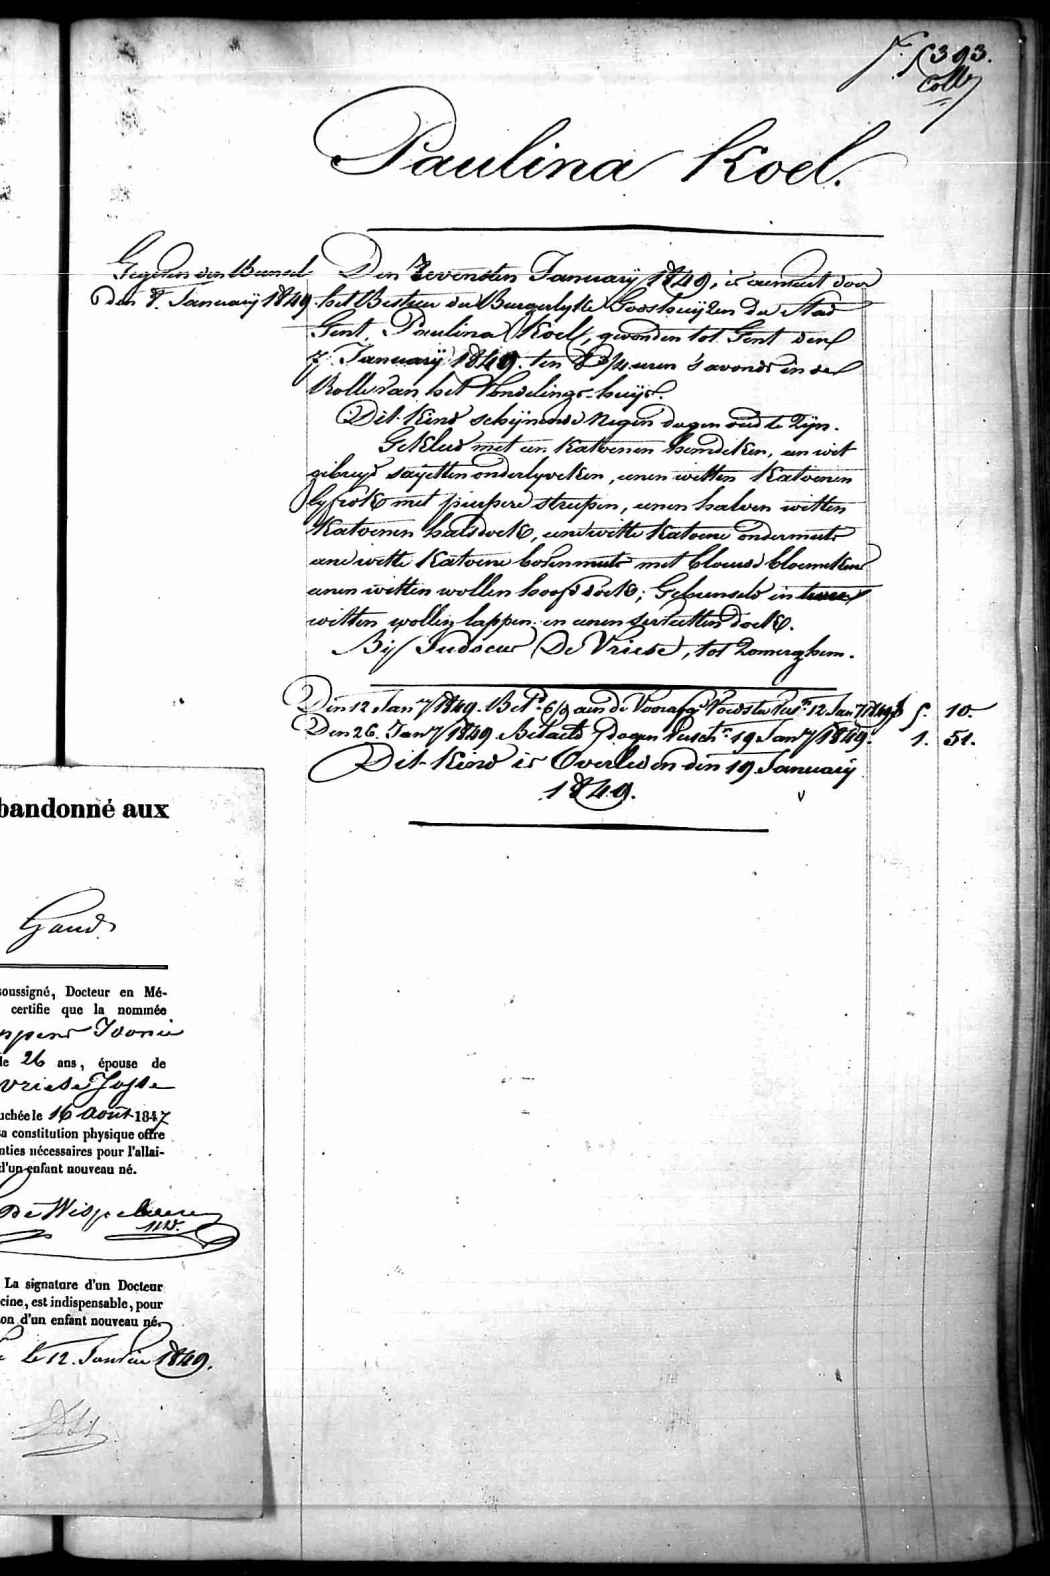 f. 5393.
Coll
Paulina Koel.
Gegeven den Bundel
den 8. January 1849
Den Zevensten January 1849, is aenveert door
het Bestier der Burgerlyke Godshuyzen der Stad
Gent, Paulina Koel, gevonden tot Gent den
7. January 1849. ten 8 3/4 uren 's avonds in de
Rolle van het Vondelings-huys.
Dit kind schijnende negen dagen oud te zijn.
Gekleed met een katoenen hemdeken, een wit
gibreyd sayetten onderlyveken, eenen witten katoenen
lyfrok met purpere streepen, eenen halven witten
katoenen halsdoek, eene witte katoene ondermuts
eene witte katoene bovenmuts met bloemekens
eenen witten wollen hoofddoek; Gebunseld in twee
witten wollen lappen en eenen servetten doek.
By Judocus De Vriese, tot Zomerghem.
Den 12 Jany 1849. Bet. 6/9 aen de Voedster 12 Jany 1849 5. 10.
Den 26. Jany 1849 Betaeld 7 dagen 19 Jany 1849. 1. 51.
Dit kind is Overleden den 19 January
1849.
bandonné aux
Gand.
soussigné, Docteur en Mé-
certifie que la nommée
le 26 ans, épouse de
vriese Josse
uchée le 16 Août 1847
sa constitution physique offre
nties nécessaires pour l'allai-
d'un enfant nouveau né.
De Wispelaere
La signature d'un Docteur
cine, est indispensable, pour
on d'un enfant nouveau né.
le 12. Janvier 1849.